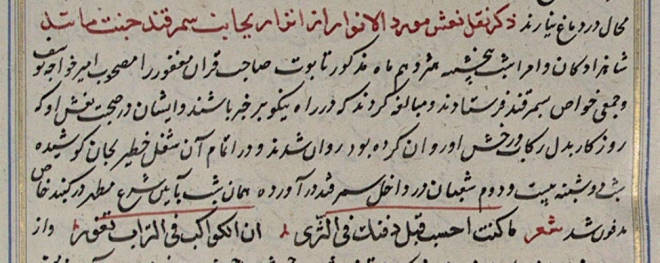 محال در دماغ نیارند ذکر نقل نعش مورد الانوار از انزار بجانب سمرقند جنت مانند
شاهزادگان و امرا شب پنجشنبه هژدهم ماه مذکور تابوت صاحب قران مغفور را مصحوب امیر خواجه یوسف
و جمعی خواص بسمرقند فرستادند و مبالغه کردند که در راه نیکو بر خبر باشند و ایشان در صحبت نعش او که
روزگار بدل رکاب رخش او روان کرده بود روان شدند و در اتمام آن شغل خطیر بجان کوشیده
شب دوشنبه بیست و دوم شعبان در داخل سمرقند درآورده همان شب بآیین شرع مطهر در گنبد خاص
مدفون شد شعر ما کنت احسب قبل دفنک فی الثری ان الکواکب فی التراب تغور و از